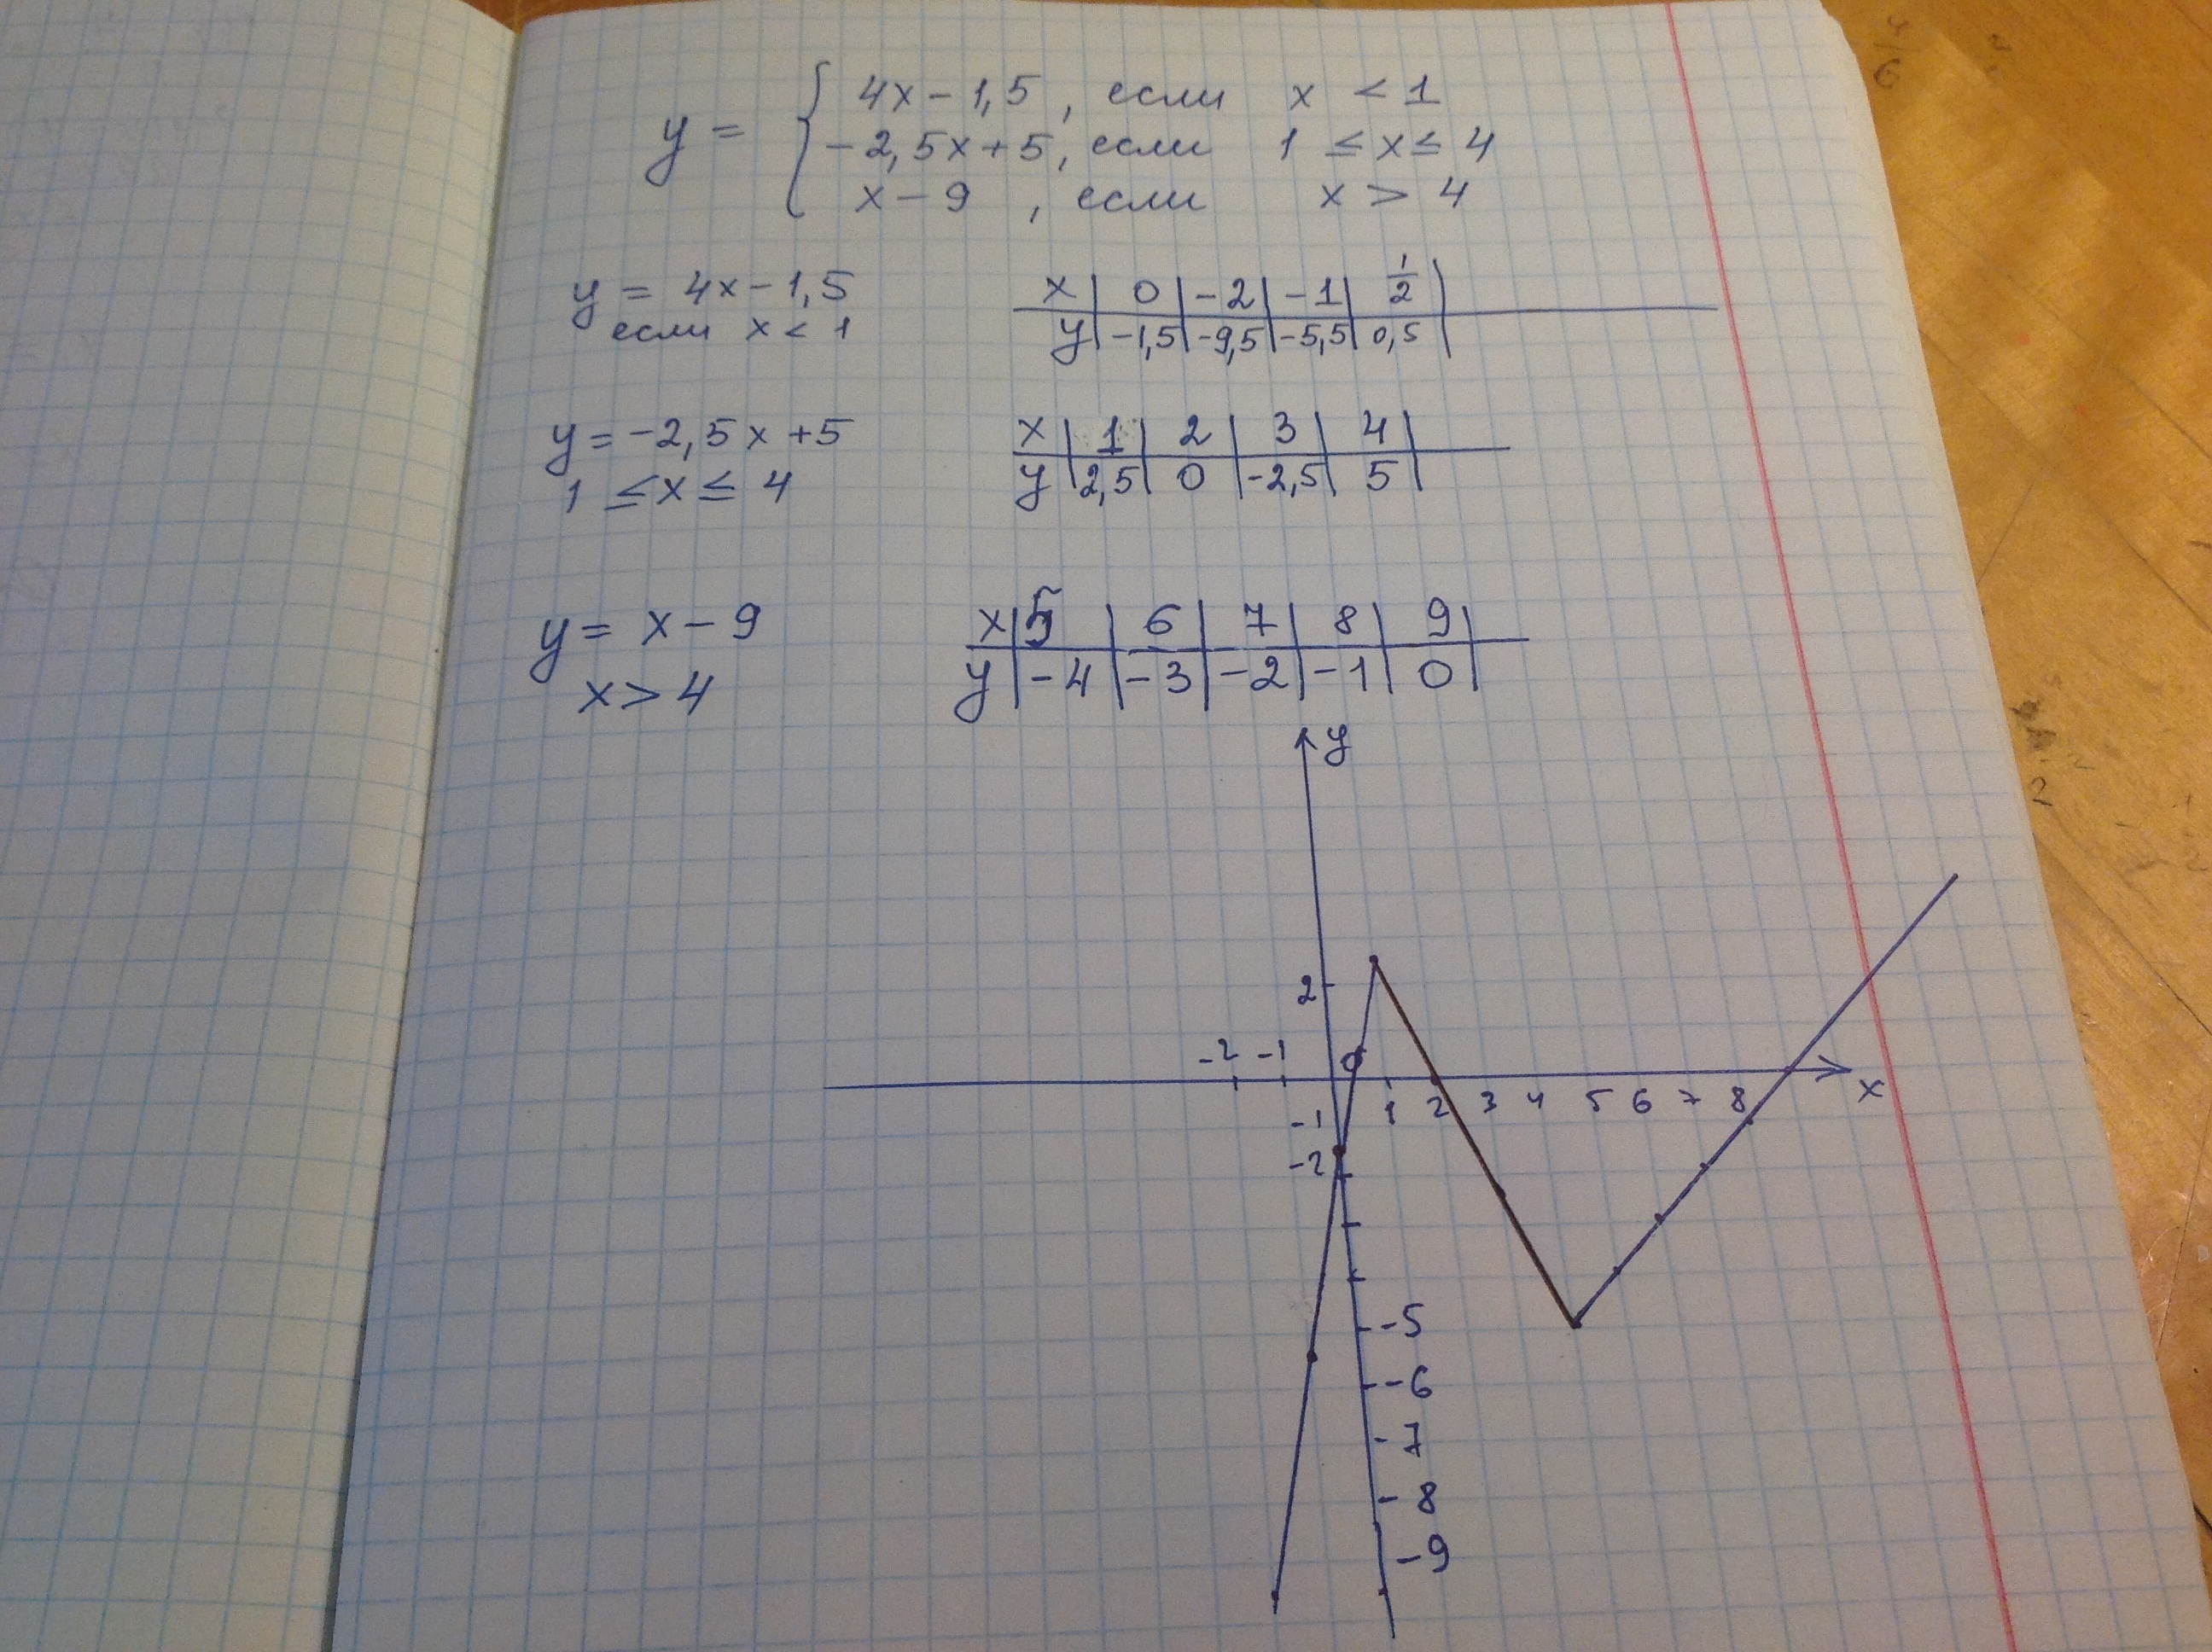 y = { 4x - 1,5 , если x < 1
- 2,5x + 5, если 1 ≤ x ≤ 4
x - 9 , если x > 4
y = 4x - 1,5
если x < 1
x | 0 | -2 | -1 | 1/2 |
y | -1,5 | -9,5 | -5,5 | 0,5 |
y = -2,5x + 5
1 ≤ x ≤ 4
x | 1 | 2 | 3 | 4 |
y | 2,5 | 0 | -2,5 | 5 |
y = x - 9
x > 4
x | 5 | 6 | 7 | 8 | 9 |
y | -4 | -3 | -2 | -1 | 0 |
y
2
-2 -1 0
1 2 3 4 5 6 7 8 x
-1
-2
-5
-6
-7
-8
-9